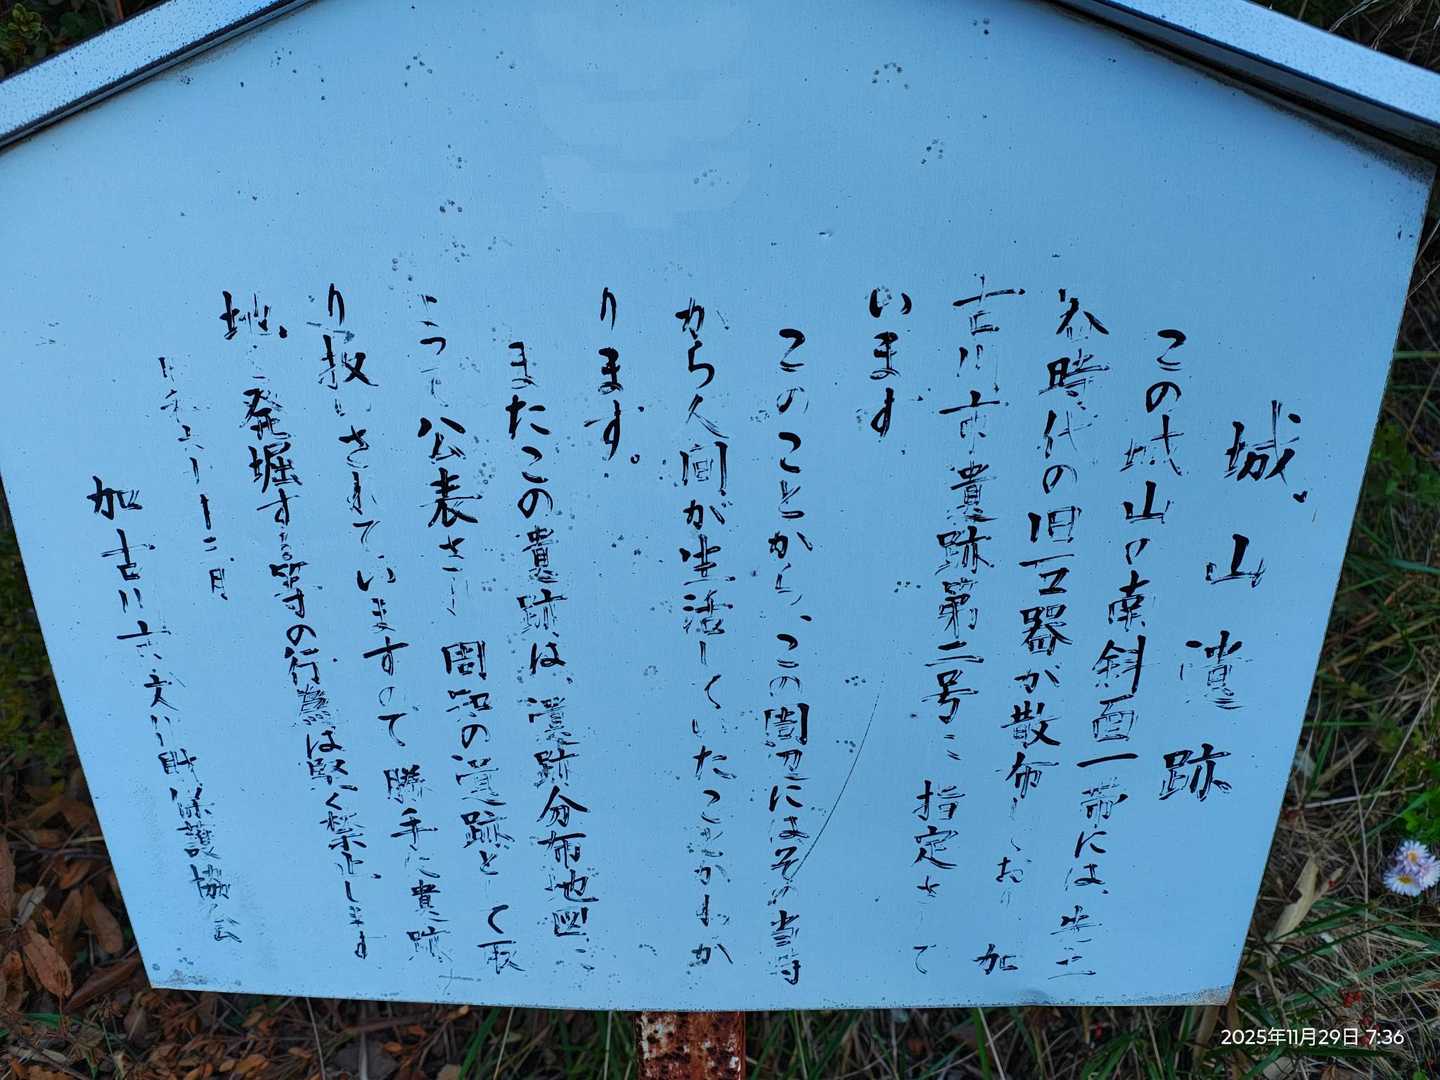 城山遺跡
この城山の南斜面一帯には、
時代の旧石器が散布しており 加
古川市遺跡第二号に指定されて
います
このことから、この周辺にはその当時
から人間が生活していたことがわか
ります。
またこの遺跡は、遺跡分布地図に
よって公表され 周知の遺跡として取
り扱いされていますので勝手に遺跡
地を発掘する等の行為は堅く禁止します
十二月
加古川市文化財保護協会
2025年11月29日 7:36